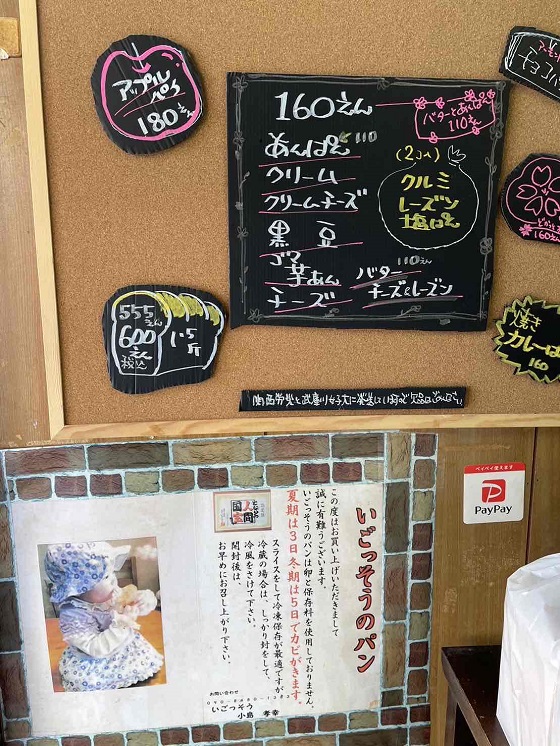 アップル
パイ
180えん
160えん
あんぱん 110
クリーム
クリームチーズ
黒 豆
ゴマ
芋あん
チーズ
バターとあんぱん
110えん
(2コ入)
クルミ
レーズン
塩ぱん
110えん
バター
チーズ&レーズン
チョコ
160えん
焼き
カレーぱ
160
555えん
600えん
税込
1.5斤
ペイペイ使えます
PayPay
いごっそうのパン
この度はお買い上げいただきまして
誠に有難うございます。
いごっそうのパンは卵と保存料を使用しておりません。
夏期は3日冬期は5日でカビがきます。
スライスをして冷凍保存が最適ですが
冷蔵の場合は、しっかり封をして、
冷風をさけて下さい。
開封後は、
お早めにお召し上がり下さい。
お問い合わせ
いごっそう
小島 孝幸